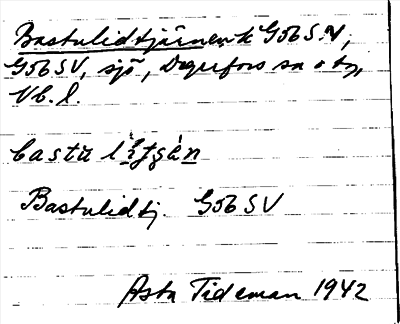 Bastulidtjärnen k G56 S.V,
G56 SV, sjö, Degerfors sn o tg,
Vb. l.
Bastulidtj. G56 SV
Asta Tideman 1942